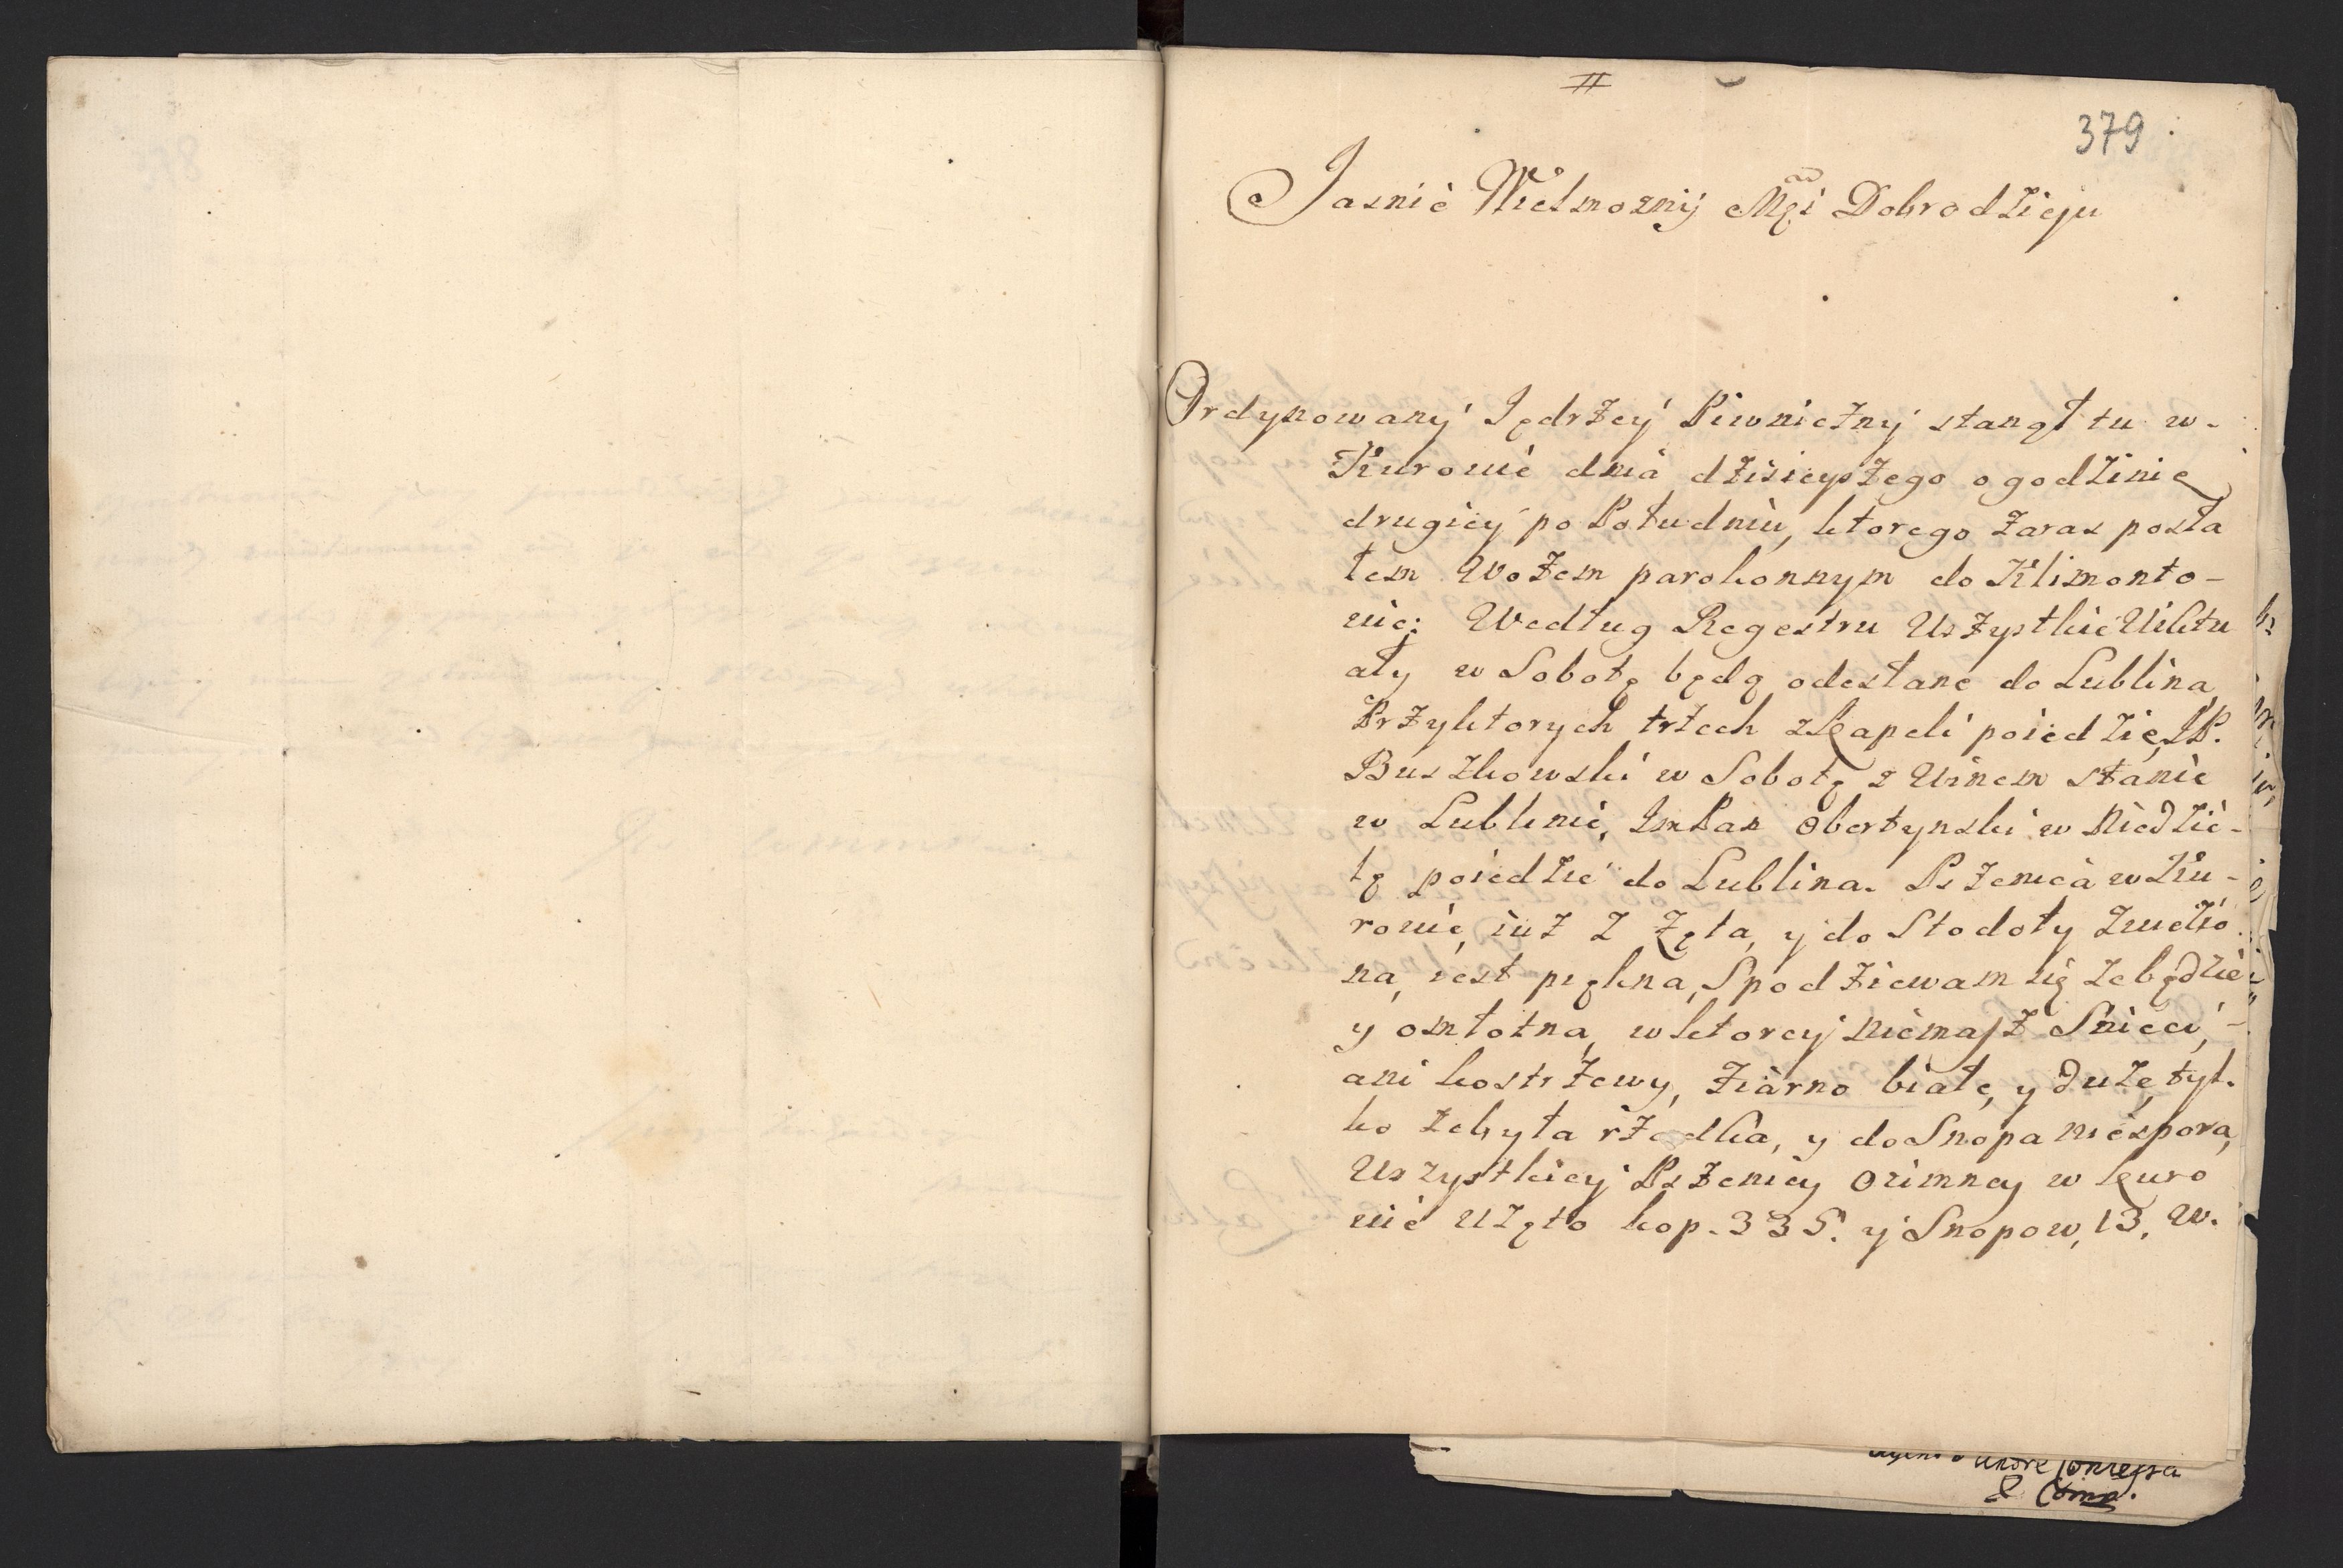 #
379
Jasnie Wielmozny Mći Dobrodzieju
Ordynowany Jędrzey Piwniczny stanął tu w-
Kurowie dnia dzisieyszego o godzinie
drugiey po Południu, ktorego zaras posła
łem Wozem parokonnym do Klimonto-
wic: Według Regestru Wszystkie Wiktu
ały w Sobotę będą odesłane do Lublina
Przyktorych trzech zKapeli poiedzie, JP.
Buszkowski w Sobotę z Winem stanie
w Lublinie, ImPan Obertynski w Niedzie-
lę poiedzie do Lublina. Pszenica w Ku-
rowie, iuz z Zęta, y do Stodoły zwiezio
na, iest piękna, Spodziewam się ze będzie
y omłotna, w ktorey niemasz Snieci,-
ani kostrzewy, Ziarno białe, y duże, tyl.
ko ze była rządka, y do Snopa niespora,
Wszystkiey Pszenicy Ozimney w Kuro
wie Uzęto kop. 335. y Snopow, 13. W.
& Comp.